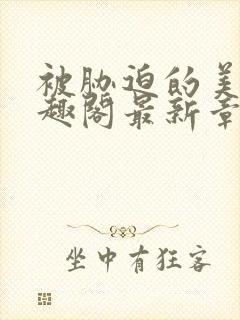 被胁迫的美
趣阁最新章
坐中有狂客